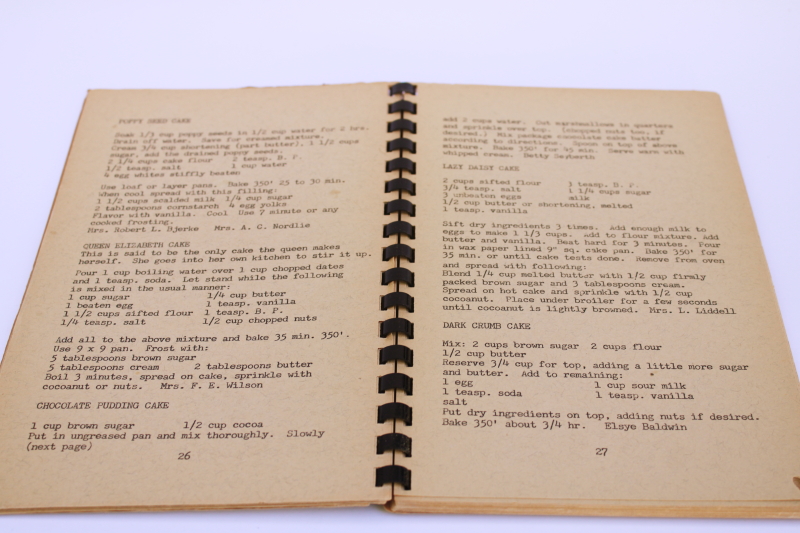 POPPY SEED CAKE
Soak 1/3 cup poppy seeds in 1/2 cup water for 2 hrs.
Drain off water. Save for creamed mixture.
Cream 3/4 cup shortening (part butter), 1 1/2 cups
sugar, add the drained poppy seeds.
2 1/4 cups cake flour 2 teasp. B. P.
1/2 teasp. salt 1 cup water
4 egg whites stiffly beaten
Use loaf or layer pans. Bake 350' 25 to 30 min.
When cool spread with this filling:
1 1/2 cups scalded milk 1/4 cup sugar
2 tablespoons cornstarch 4 egg yolks
Flavor with vanilla. Cool Use 7 minute or any
cooked frosting.
Mrs. Robert L. Bjerke Mrs. A. C. Nordlie
QUEEN ELIZABETH CAKE
This is said to be the only cake the queen makes
herself. She goes into her own kitchen to stir it up.
Pour 1 cup boiling water over 1 cup chopped dates
and 1 teasp. soda. Let stand while the following
is mixed in the usual manner:
1 cup sugar 1/4 cup butter
1 beaten egg 1 teasp. vanilla
1 1/2 cups sifted flour 1 teasp. B. P.
1/4 teasp. salt 1/2 cup chopped nuts
Add all to the above mixture and bake 35 min. 350'.
Use 9 x 9 pan. Frost with:
5 tablespoons brown sugar
5 tablespoons cream 2 tablespoons butter
Boil 3 minutes, spread on cake, sprinkle with
cocoanut or nuts. Mrs. F. E. Wilson
CHOCOLATE PUDDING CAKE
1 cup brown sugar 1/2 cup cocoa
Put in ungreased pan and mix thoroughly. Slowly
(next page)
26
add 2 cups water. Cut marshmallows in quarters
and sprinkle over top. (chopped nuts too, if
desired.) Mix package chocolate cake batter
according to directions. Spoon on top of above
mixture. Bake 350' for 45 min. Serve warm with
whipped cream. Betty Seyberth
LAZY DAISY CAKE
2 cups sifted flour 3 teasp. B. P.
3/4 teasp. salt 1 1/4 cups sugar
3 unbeaten eggs milk
1/2 cup butter or shortening, melted
1 teasp. vanilla
Sift dry ingredients 3 times. Add enough milk to
eggs to make 1 1/3 cups. Add to flour mixture. Add
butter and vanilla. Beat hard for 3 minutes. Pour
in wax paper lined 9" sq. cake pan. Bake 350' for
35 min. or until cake tests done. Remove from oven
and spread with following:
Blend 1/4 cup melted butter with 1/2 cup firmly
packed brown sugar and 3 tablespoons cream.
Spread on hot cake and sprinkle with 1/2 cup
cocoanut. Place under broiler for a few seconds
until cocoanut is lightly browned. Mrs. L. Liddell
DARK CRUMB CAKE
Mix: 2 cups brown sugar 2 cups flour
1/2 cup butter
Reserve 3/4 cup for top, adding a little more sugar
and butter. Add to remaining:
1 egg 1 cup sour milk
1 teasp. soda 1 teasp. vanilla
salt
Put dry ingredients on top, adding nuts if desired.
Bake 350' about 3/4 hr. Elsye Baldwin
27